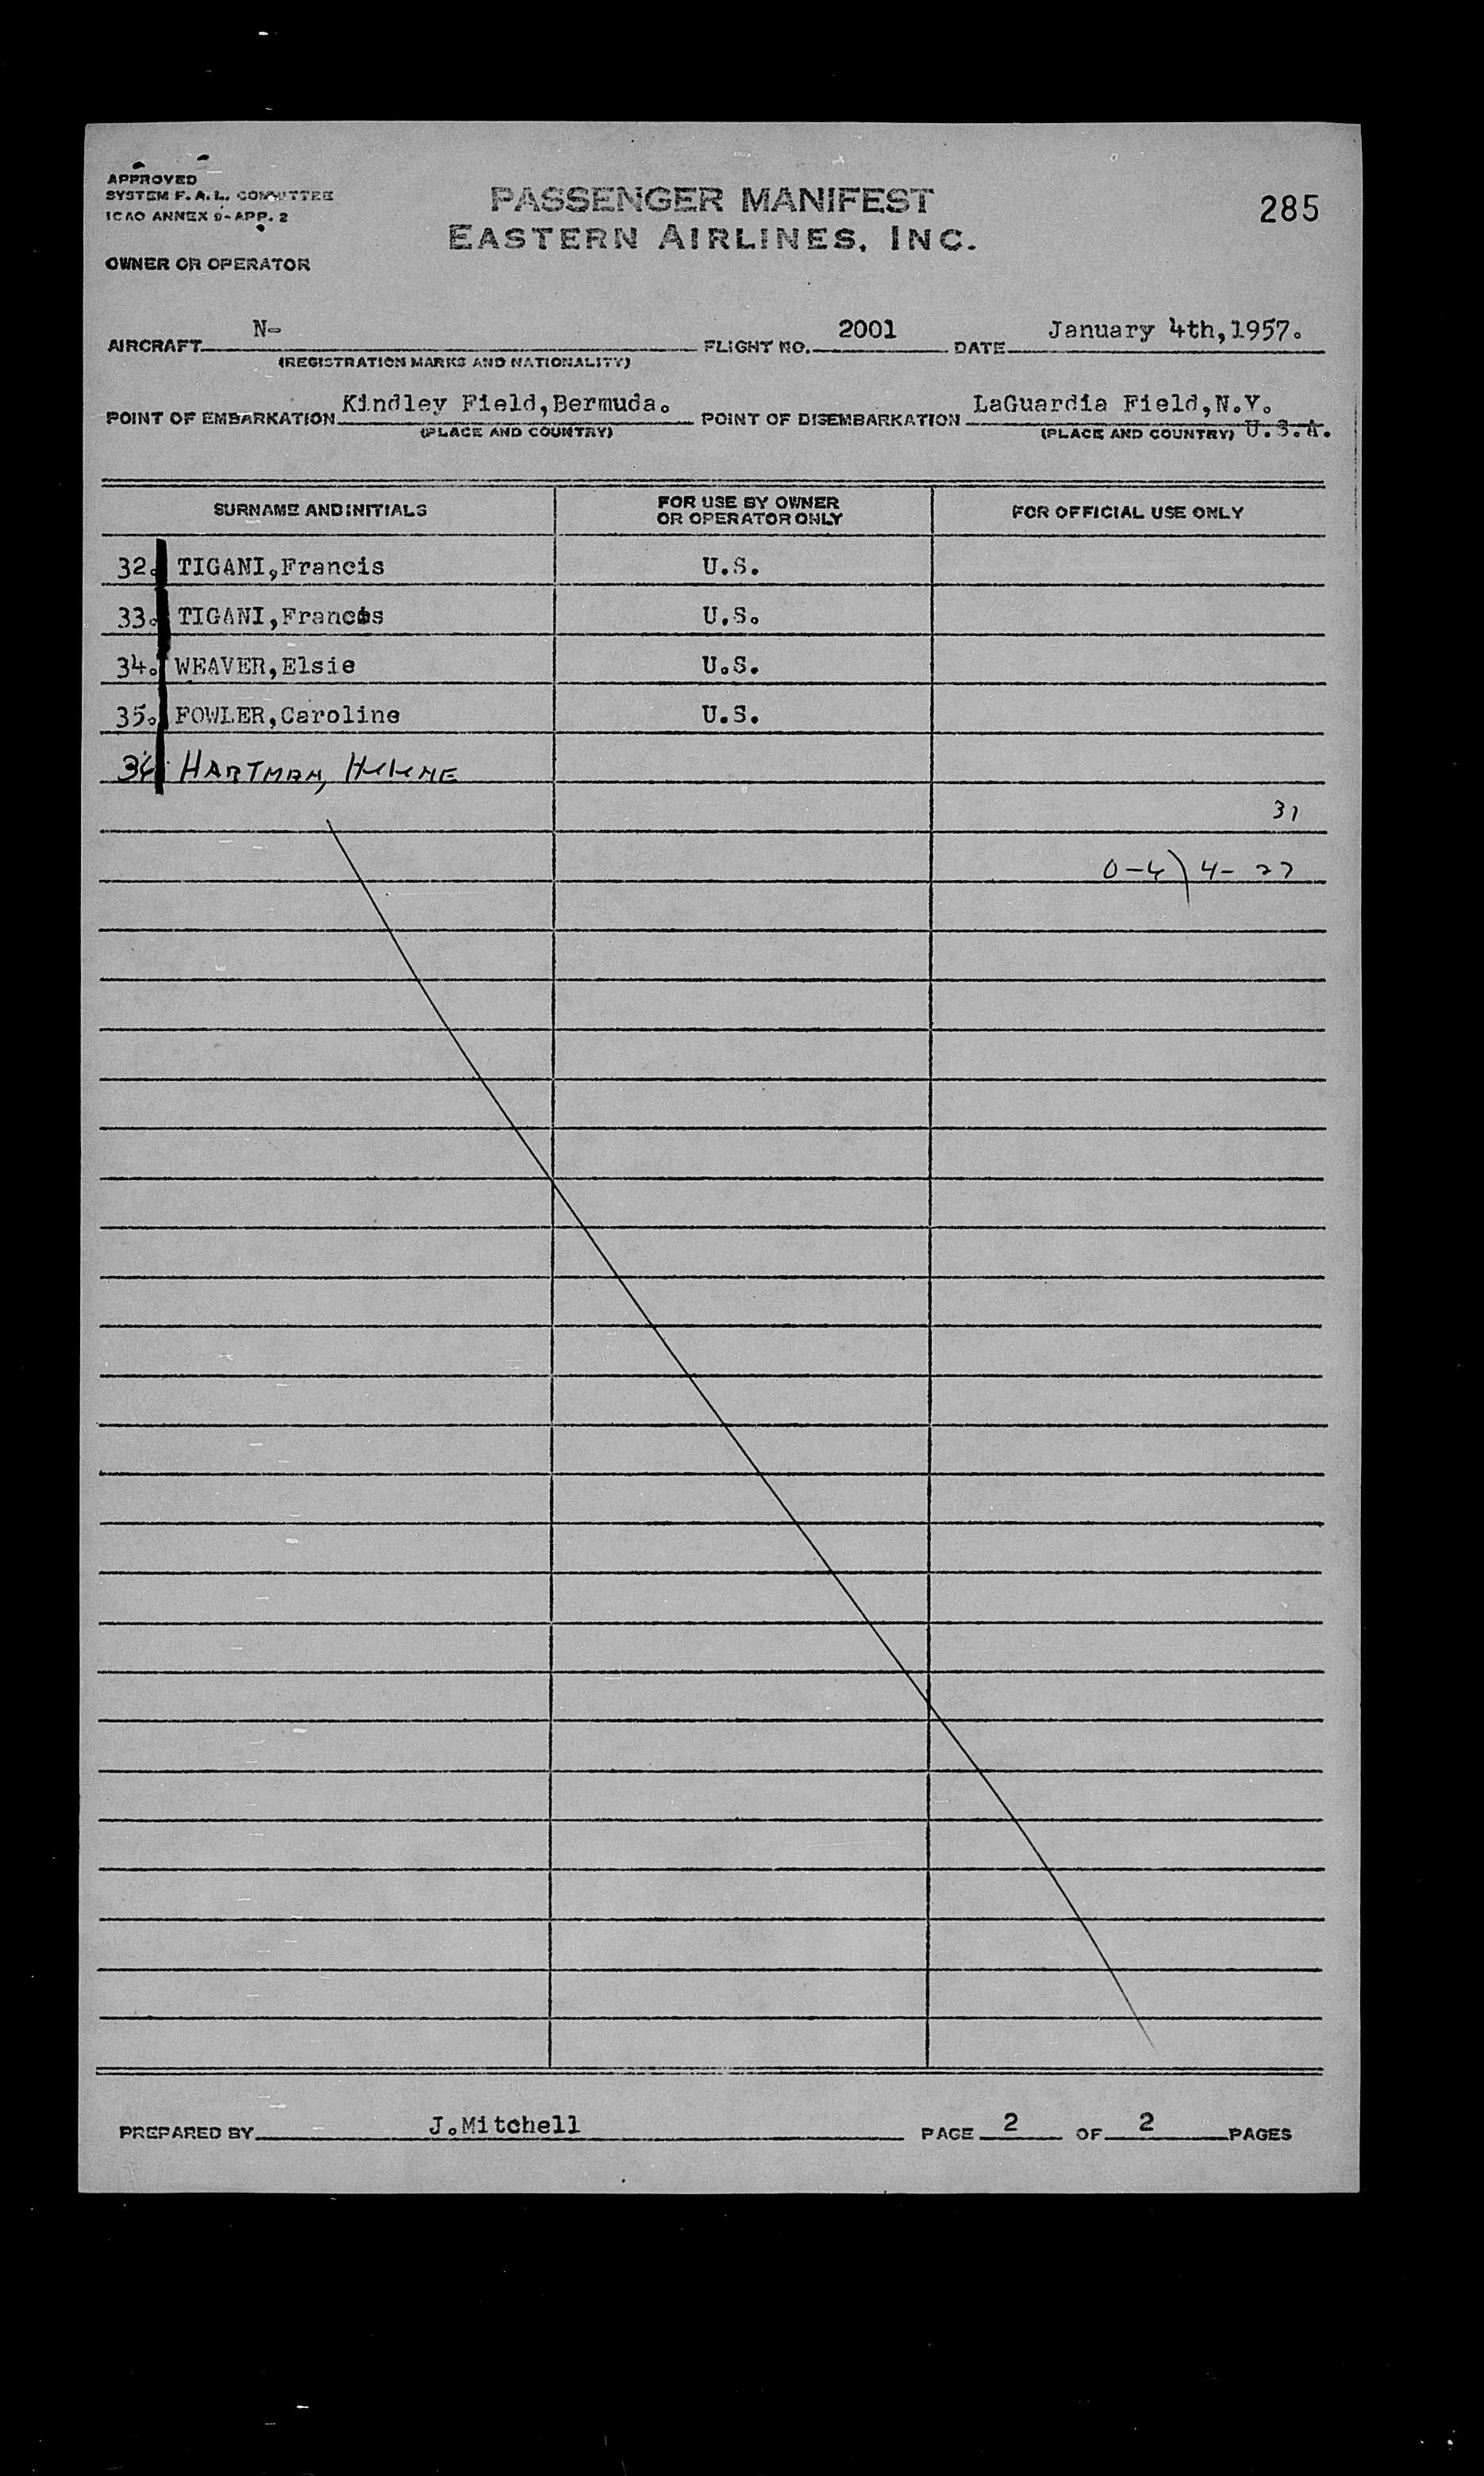 APPROVED
SYSTEM F. A. L. COMMITTEE
ICAO ANNEX 9-APP. 2
OWNER OR OPERATOR
PASSENGER MANIFEST
EASTERN AIRLINES, INC.
285
AIRCRAFT N- FLIGHT NO. 2001 DATE January 4th,1957.
(REGISTRATION MARKS AND NATIONALITY)
POINT OF EMBARKATION Kindley Field,Bermuda. POINT OF DISEMBARKATION LaGuardia Field,N.Y.
(PLACE AND COUNTRY) (PLACE AND COUNTRY) U.S.A.
SURNAME AND INITIALS FOR USE BY OWNER OR OPERATOR ONLY FOR OFFICIAL USE ONLY
32. TIGANI,Francis U.S.
33. TIGANI,Frances U.S.
34. WEAVER,Elsie U.S.
35. FOWLER,Caroline U.S.
36 HARTMAN, HELENE
31
0-4) 4-27
PREPARED BY J.Mitchell PAGE 2 OF 2 PAGES